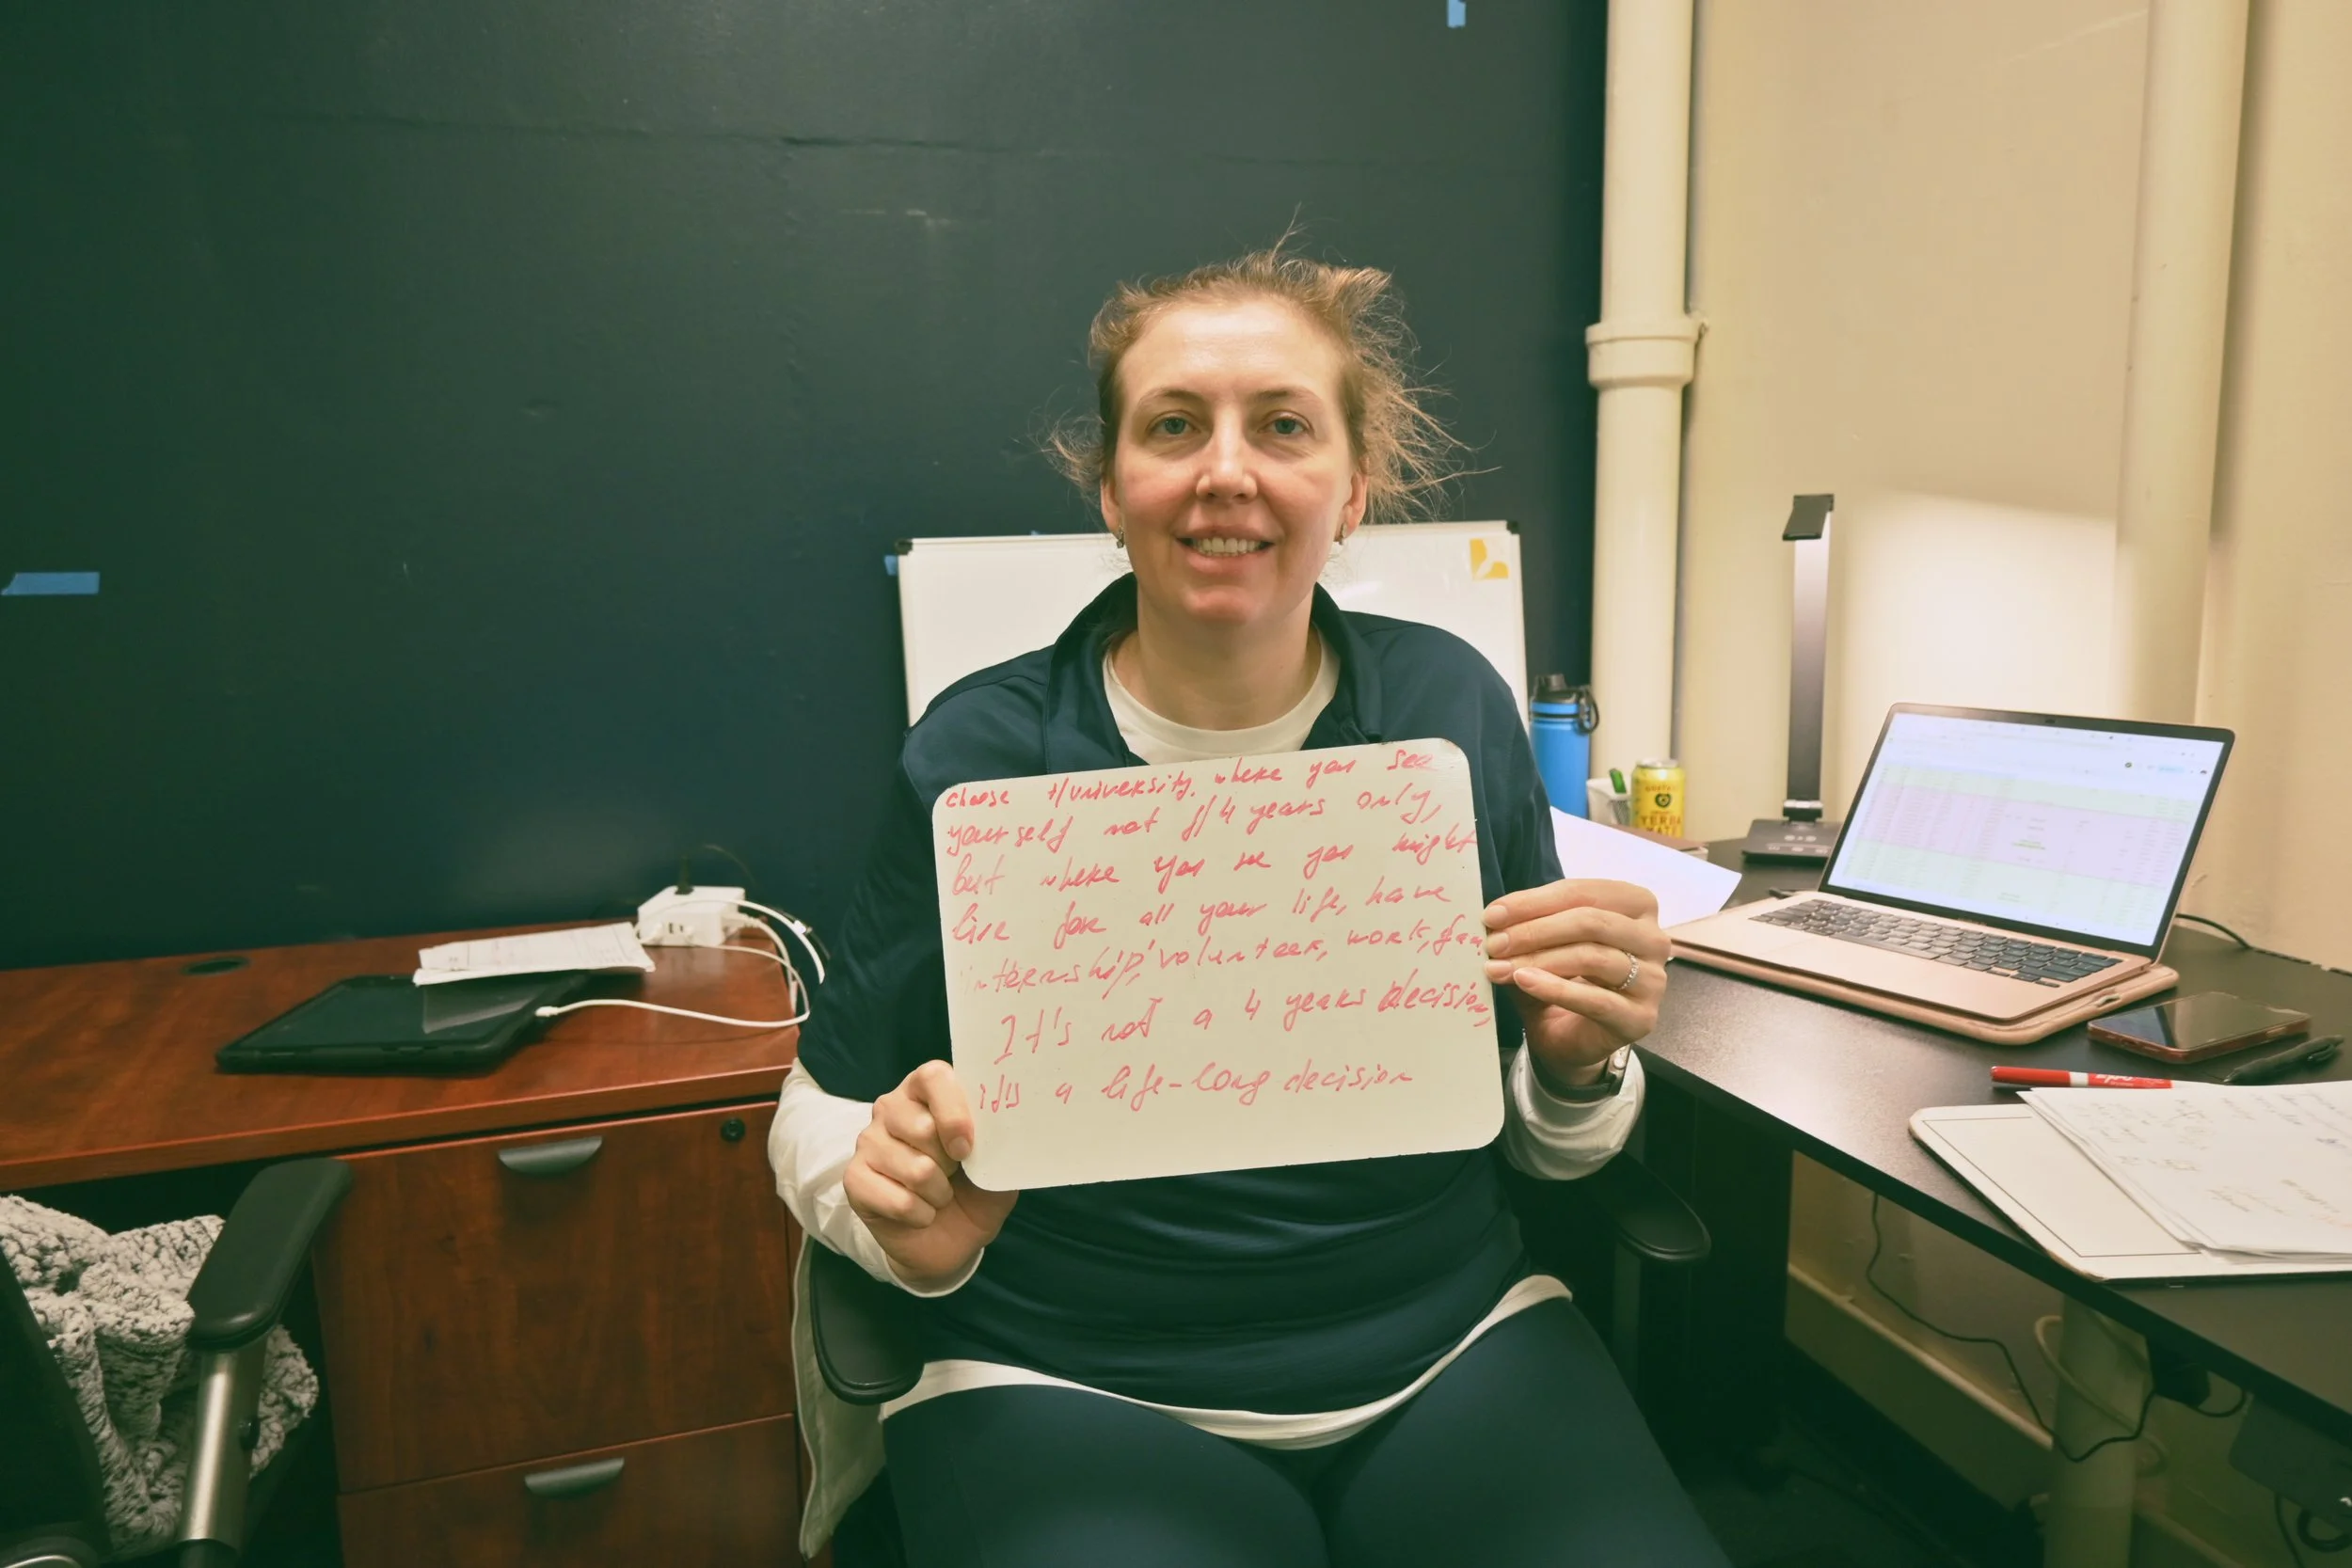 choose t/university, where you see
yourself not f/4 years only,
but where you see you might
live for all your life, have
internship, volunteer, work, fam
It's not a 4 years decision,
it's a life-long decision
YERBA
MATE